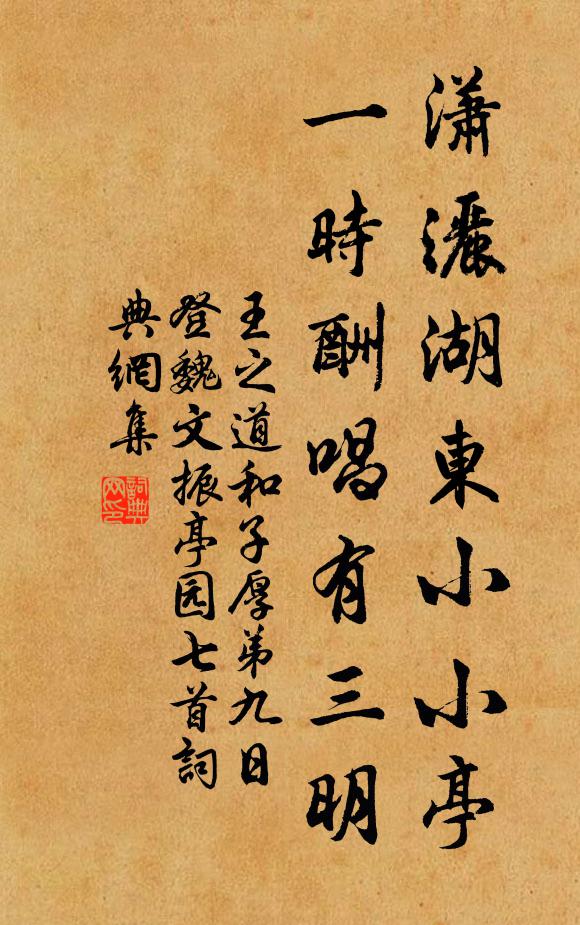 瀟灑湖東小小亭
一時酬唱有三明
王之道和子厚弟九日
登魏文振亭园七首詞
典網集
詞典
网印